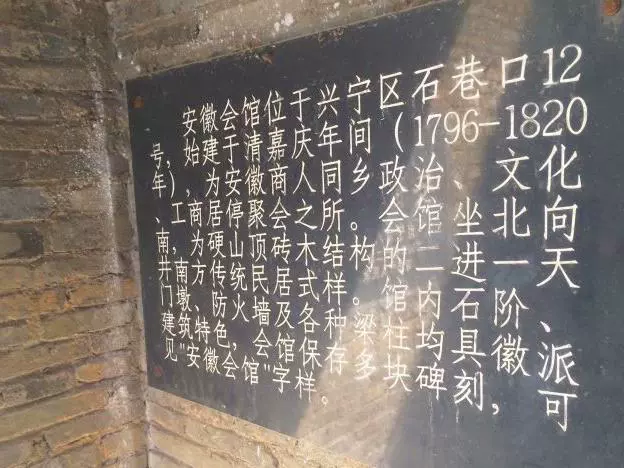 安徽会馆位于兴宁区石巷口12
号,始建于清嘉庆年间(1796-1820
年),为安徽商人同乡政治、文化
、工商居停聚会之所。会馆坐北向
南,为硬山顶砖木结构的二进一天
井南方传统民居式样。馆内石阶、
门墩、防火墙及各种梁柱均具徽派
建筑特色,会馆保存多块碑刻,可
见"安徽会馆"字样。